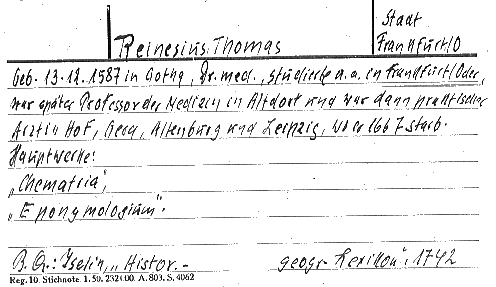 Stadt
Reinesius. Thomas Frankfurt/O
Geb. 13.12.1587 in Gotha, Dr. med., studierte u.a. in Frankfurt/Oder,
war später Professor der Medizin in Altdorf und war dann praktischer
Arzt in Hof, Gera, Altenburg und Leipzig, wo er 1667 starb.
Hauptwerke:
„Chematria",
„Eponymologium".
B. Qu.: Iselin, „Histor. - geogr. Lexikon", 1742
Reg. 10. Stichnote. 1. 50. 232/.00. A. 803. S. 4062